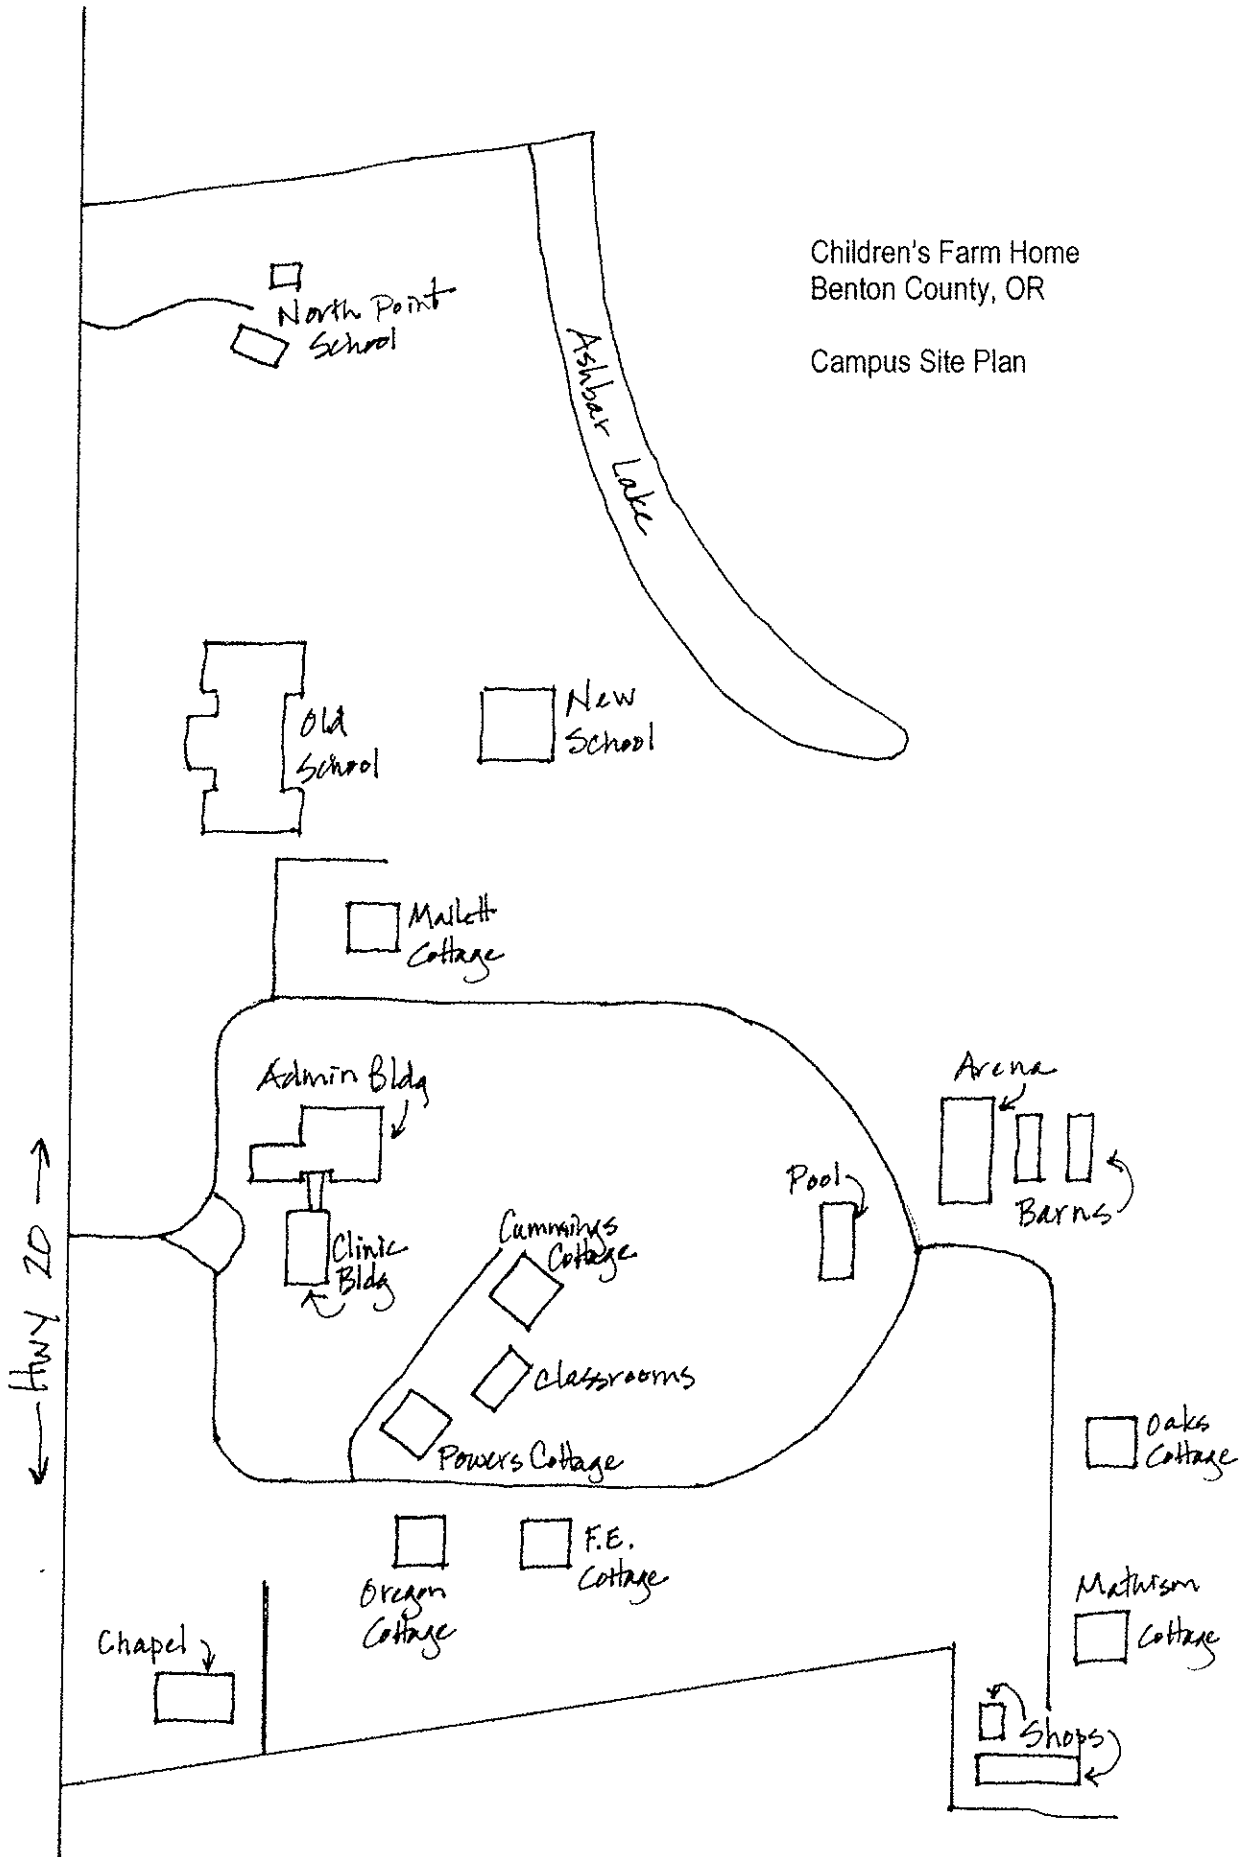 Children's Farm Home
Benton County, OR
Campus Site Plan
North Point
School
Ashbar Lake
Old
School
New
School
Cottage
Admin Bldg
Arena
Pool
Barns
Clinic
Bldg
Cummings
Cottage
Hwy 20
Classrooms
Powers Cottage
Oaks
Cottage
Oregon
Cottage
F.E.
Cottage
Mathison
Cottage
Chapel
Shops